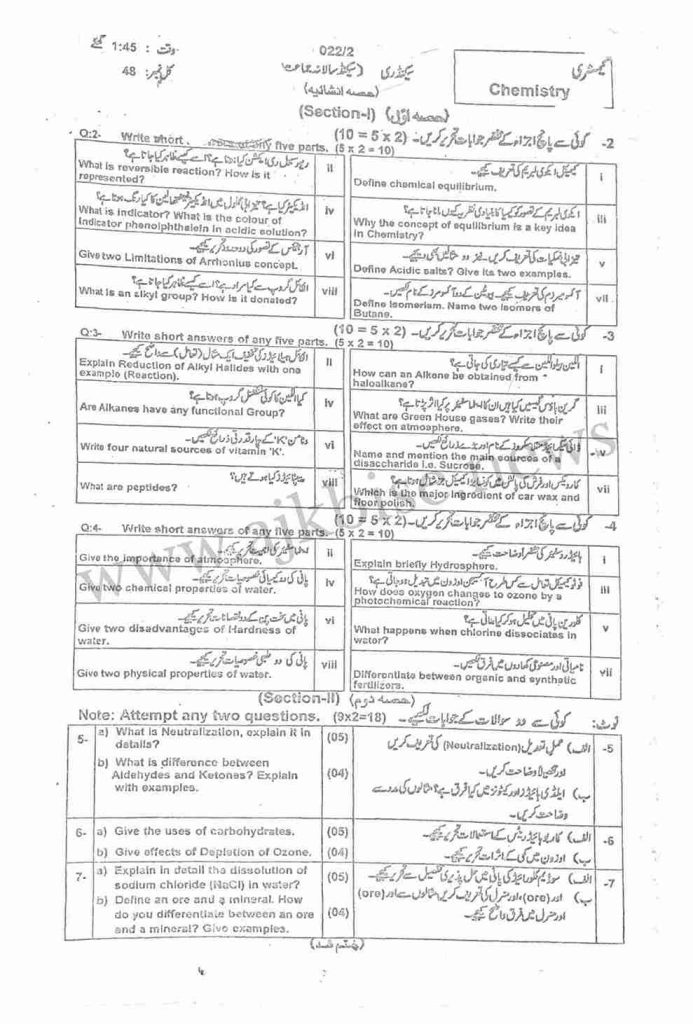 وقت : 1:45 گھنٹے
022/2
کیمسٹری
کل نمبر: 48
سیکنڈری (سیکنڈ سالانہ جماعت
(حصہ انشائیہ)
Chemistry
(Section-I) (حصہ اول)
Q:2- Write short any five parts. (5 x 2 = 10)
2- کوئی سے پانچ اجزاء کے مختصر جوابات تحریر کریں۔ (10 = 5 x 2)
i
کیمیکل ایکوی لبریم کی تعریف کیجیے۔
Define chemical equilibrium.
ii
What is reversible reaction? How is it
represented?
iii
Why the concept of equilibrium is a key idea
in Chemistry?
iv
What is indicator? What is the colour of
Indicator phenolphthalein in acidic solution?
v
Define Acidic salts? Give its two examples.
vi
Give two Limitations of Arrhenius concept.
vii
Define Isomerism. Name two Isomers of
Butane.
viii
What is an alkyl group? How is it donated?
Q:3- Write short answers of any five parts. (5 x 2 = 10)
3- کوئی سے پانچ اجزاء کے مختصر جوابات تحریر کریں۔ (10 = 5 x 2)
i
How can an Alkane be obtained from
haloalkane?
ii
Explain Reduction of Alkyl Halides with one
example (Reaction).
iii
What are Green House gases? Write their
effect on atmosphere.
iv
Are Alkanes have any functional Group?
v
Name and mention the main sources of a
disaccharide i.e. Sucrose.
vi
وٹامن 'K' کے چار قدرتی ذرائع لکھیں۔
Write four natural sources of vitamin 'K'.
vii
Which is the major ingredient of car wax and
floor polish.
viii
پیپٹائیڈز کیا ہوتے ہیں؟
What are peptides?
Q:4- Write short answers of any five parts. (5 x 2 = 10)
4- کوئی سے پانچ اجزاء کے مختصر جوابات تحریر کریں۔ (10 = 5 x 2)
i
ہائیڈروسفیئر کی مختصر وضاحت کیجیے۔
Explain briefly Hydrosphere.
ii
Give the importance of atmosphere.
iii
How does oxygen changes to ozone by a
photochemical reaction?
iv
پانی کی دو کیمیائی خصوصیات تحریر کیجیے۔
Give two chemical properties of water.
v
What happens when chlorine dissociates in
water?
vi
Give two disadvantages of Hardness of
water.
vii
نامیاتی اور مصنوعی کھادوں میں فرق لکھیں۔
Differentiate between organic and synthetic
fertilizers.
viii
پانی کی دو طبعی خصوصیات تحریر کیجیے۔
Give two physical properties of water.
(Section-II) (حصہ دوم)
Note: Attempt any two questions. (9x2=18)
نوٹ: کوئی سے دو سوالات کے جوابات لکھیے۔
5- a) What is Neutralization, explain it in
details? (05)
b) What is difference between
Aldehydes and Ketones? Explain
with examples. (04)
5- الف) عمل تعدیل (Neutralization) کی تعریف کریں
اور تفصیلاً وضاحت کریں۔
ب) ایلڈی ہائیڈز اور کیٹونز میں کیا فرق ہے؟ مثالوں کی مدد سے
وضاحت کریں۔
6- a) Give the uses of carbohydrates. (05)
b) Give effects of Depletion of Ozone. (04)
6- الف) کاربوہائیڈریٹس کے استعمالات تحریر کیجیے۔
ب) اوزون میں کمی کے اثرات تحریر کیجیے۔
7- a) Explain in detail the dissolution of
sodium chloride (NaCl) in water? (05)
b) Define an ore and a mineral. How
do you differentiate between an ore
and a mineral? Give examples. (04)
7- الف) سوڈیم کلورائیڈ کی پانی میں حل پذیری تفصیل سے تحریر کیجیے۔
ب) اور (ore) اور منرل کی تعریف کریں مثالوں سے اور (ore)
اور منرل میں فرق واضح کیجیے۔
www.ajkbise.news